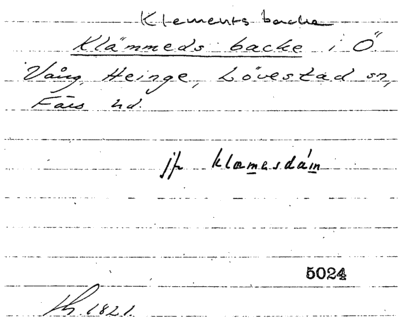 Klements backe
Klämmeds backe i Ö
Vång, Heinge, Lövestad sn,
Färs hd.
jfr klamesdám
5024
1821.